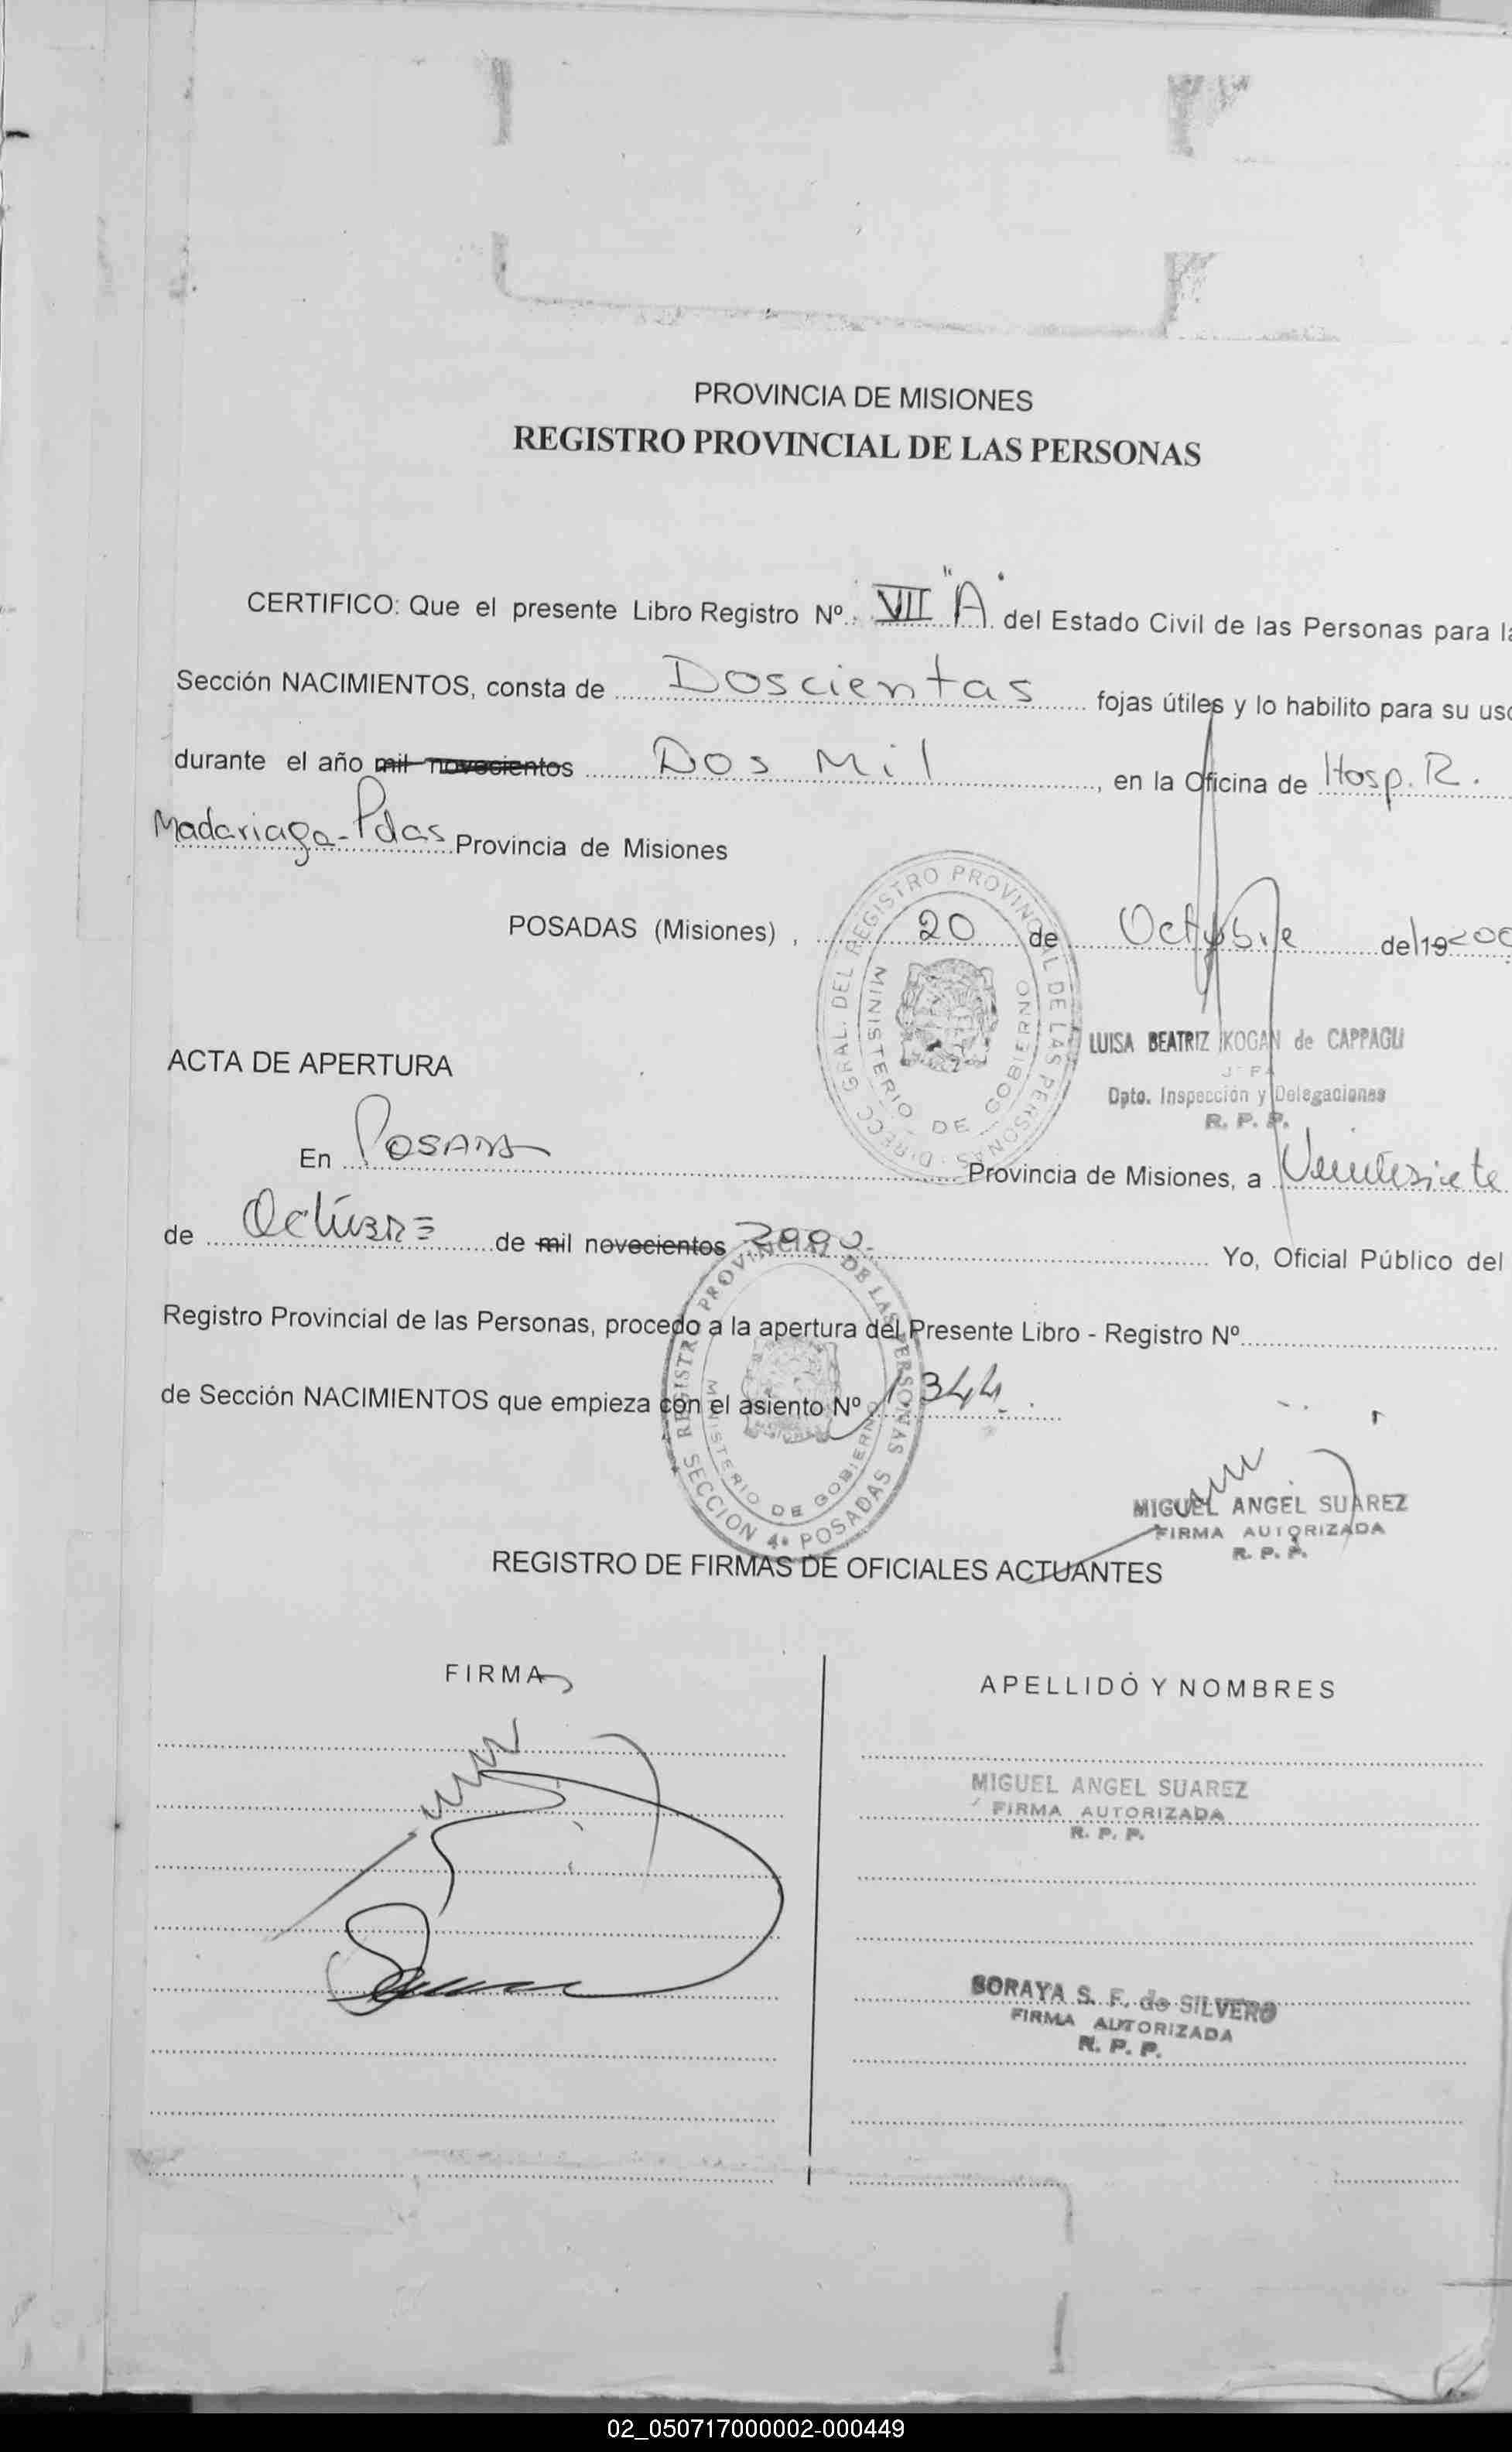 PROVINCIA DE MISIONES
REGISTRO PROVINCIAL DE LAS PERSONAS
CERTIFICO: Que el presente Libro Registro Nº VII "A" del Estado Civil de las Personas para la
Sección NACIMIENTOS, consta de Doscientas fojas útiles y lo habilito para su uso
durante el año mil novecientos Dos Mil, en la Oficina de Hosp. R.
Madariaga-Pdas Provincia de Misiones
POSADAS (Misiones), 20 de Octubre del 19 200
DIRECC. GRAL. DEL REGISTRO PROVINCIAL DE LAS PERSONAS
MINISTERIO DE GOBIERNO
LUISA BEATRIZ KOGAN de CAPPAGLI
JEFA
Dpto. Inspección y Delegaciones
R. P. P.
ACTA DE APERTURA
En Posadas Provincia de Misiones, a Veintisiete
de Octubre de mil novecientos 2000.- Yo, Oficial Público del
Registro Provincial de las Personas, procedo a la apertura del Presente Libro - Registro Nº
de Sección NACIMIENTOS que empieza con el asiento Nº 1344.
REGISTRO PROVINCIAL DE LAS PERSONAS
MINISTERIO DE GOBIERNO
SECCION 4ª POSADAS
MIGUEL ANGEL SUAREZ
FIRMA AUTORIZADA
R. P. P.
REGISTRO DE FIRMAS DE OFICIALES ACTUANTES
FIRMA
APELLIDO Y NOMBRES
MIGUEL ANGEL SUAREZ
FIRMA AUTORIZADA
R. P. P.
SORAYA S. F. de SILVERO
FIRMA AUTORIZADA
R. P. P.
02_050717000002-000449